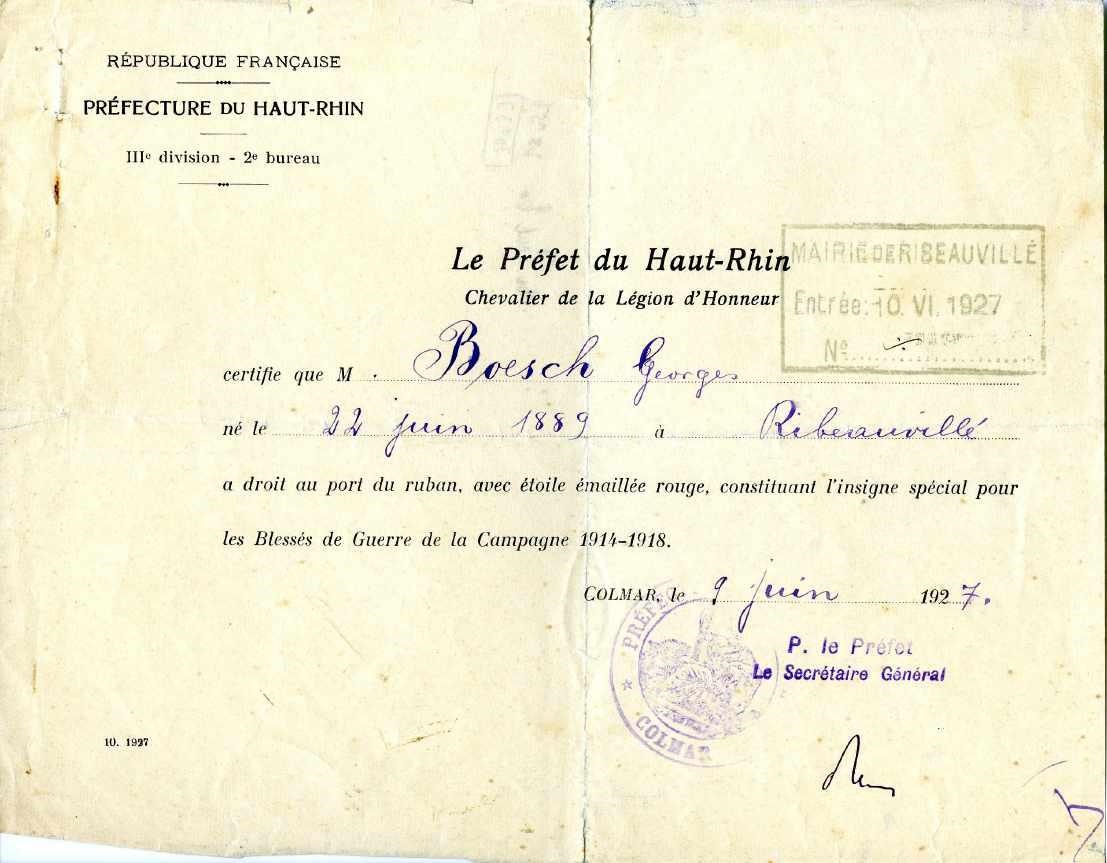 RÉPUBLIQUE FRANÇAISE
PRÉFECTURE DU HAUT-RHIN
IIIe division - 2e bureau
Le Préfet du Haut-Rhin
Chevalier de la Légion d'Honneur
MAIRIE DE RIBEAUVILLÉ
Entrée: 10. VI. 1927
No
certifie que M. Boesch Georges
né le 22 juin 1889 à Ribeauvillé
a droit au port du ruban, avec étoile émaillée rouge, constituant l'insigne spécial pour
les Blessés de Guerre de la Campagne 1914-1918.
COLMAR, le 9 juin 1927.
PRÉFEC
COLMAR
P. le Préfet
Le Secrétaire Général
10. 1927